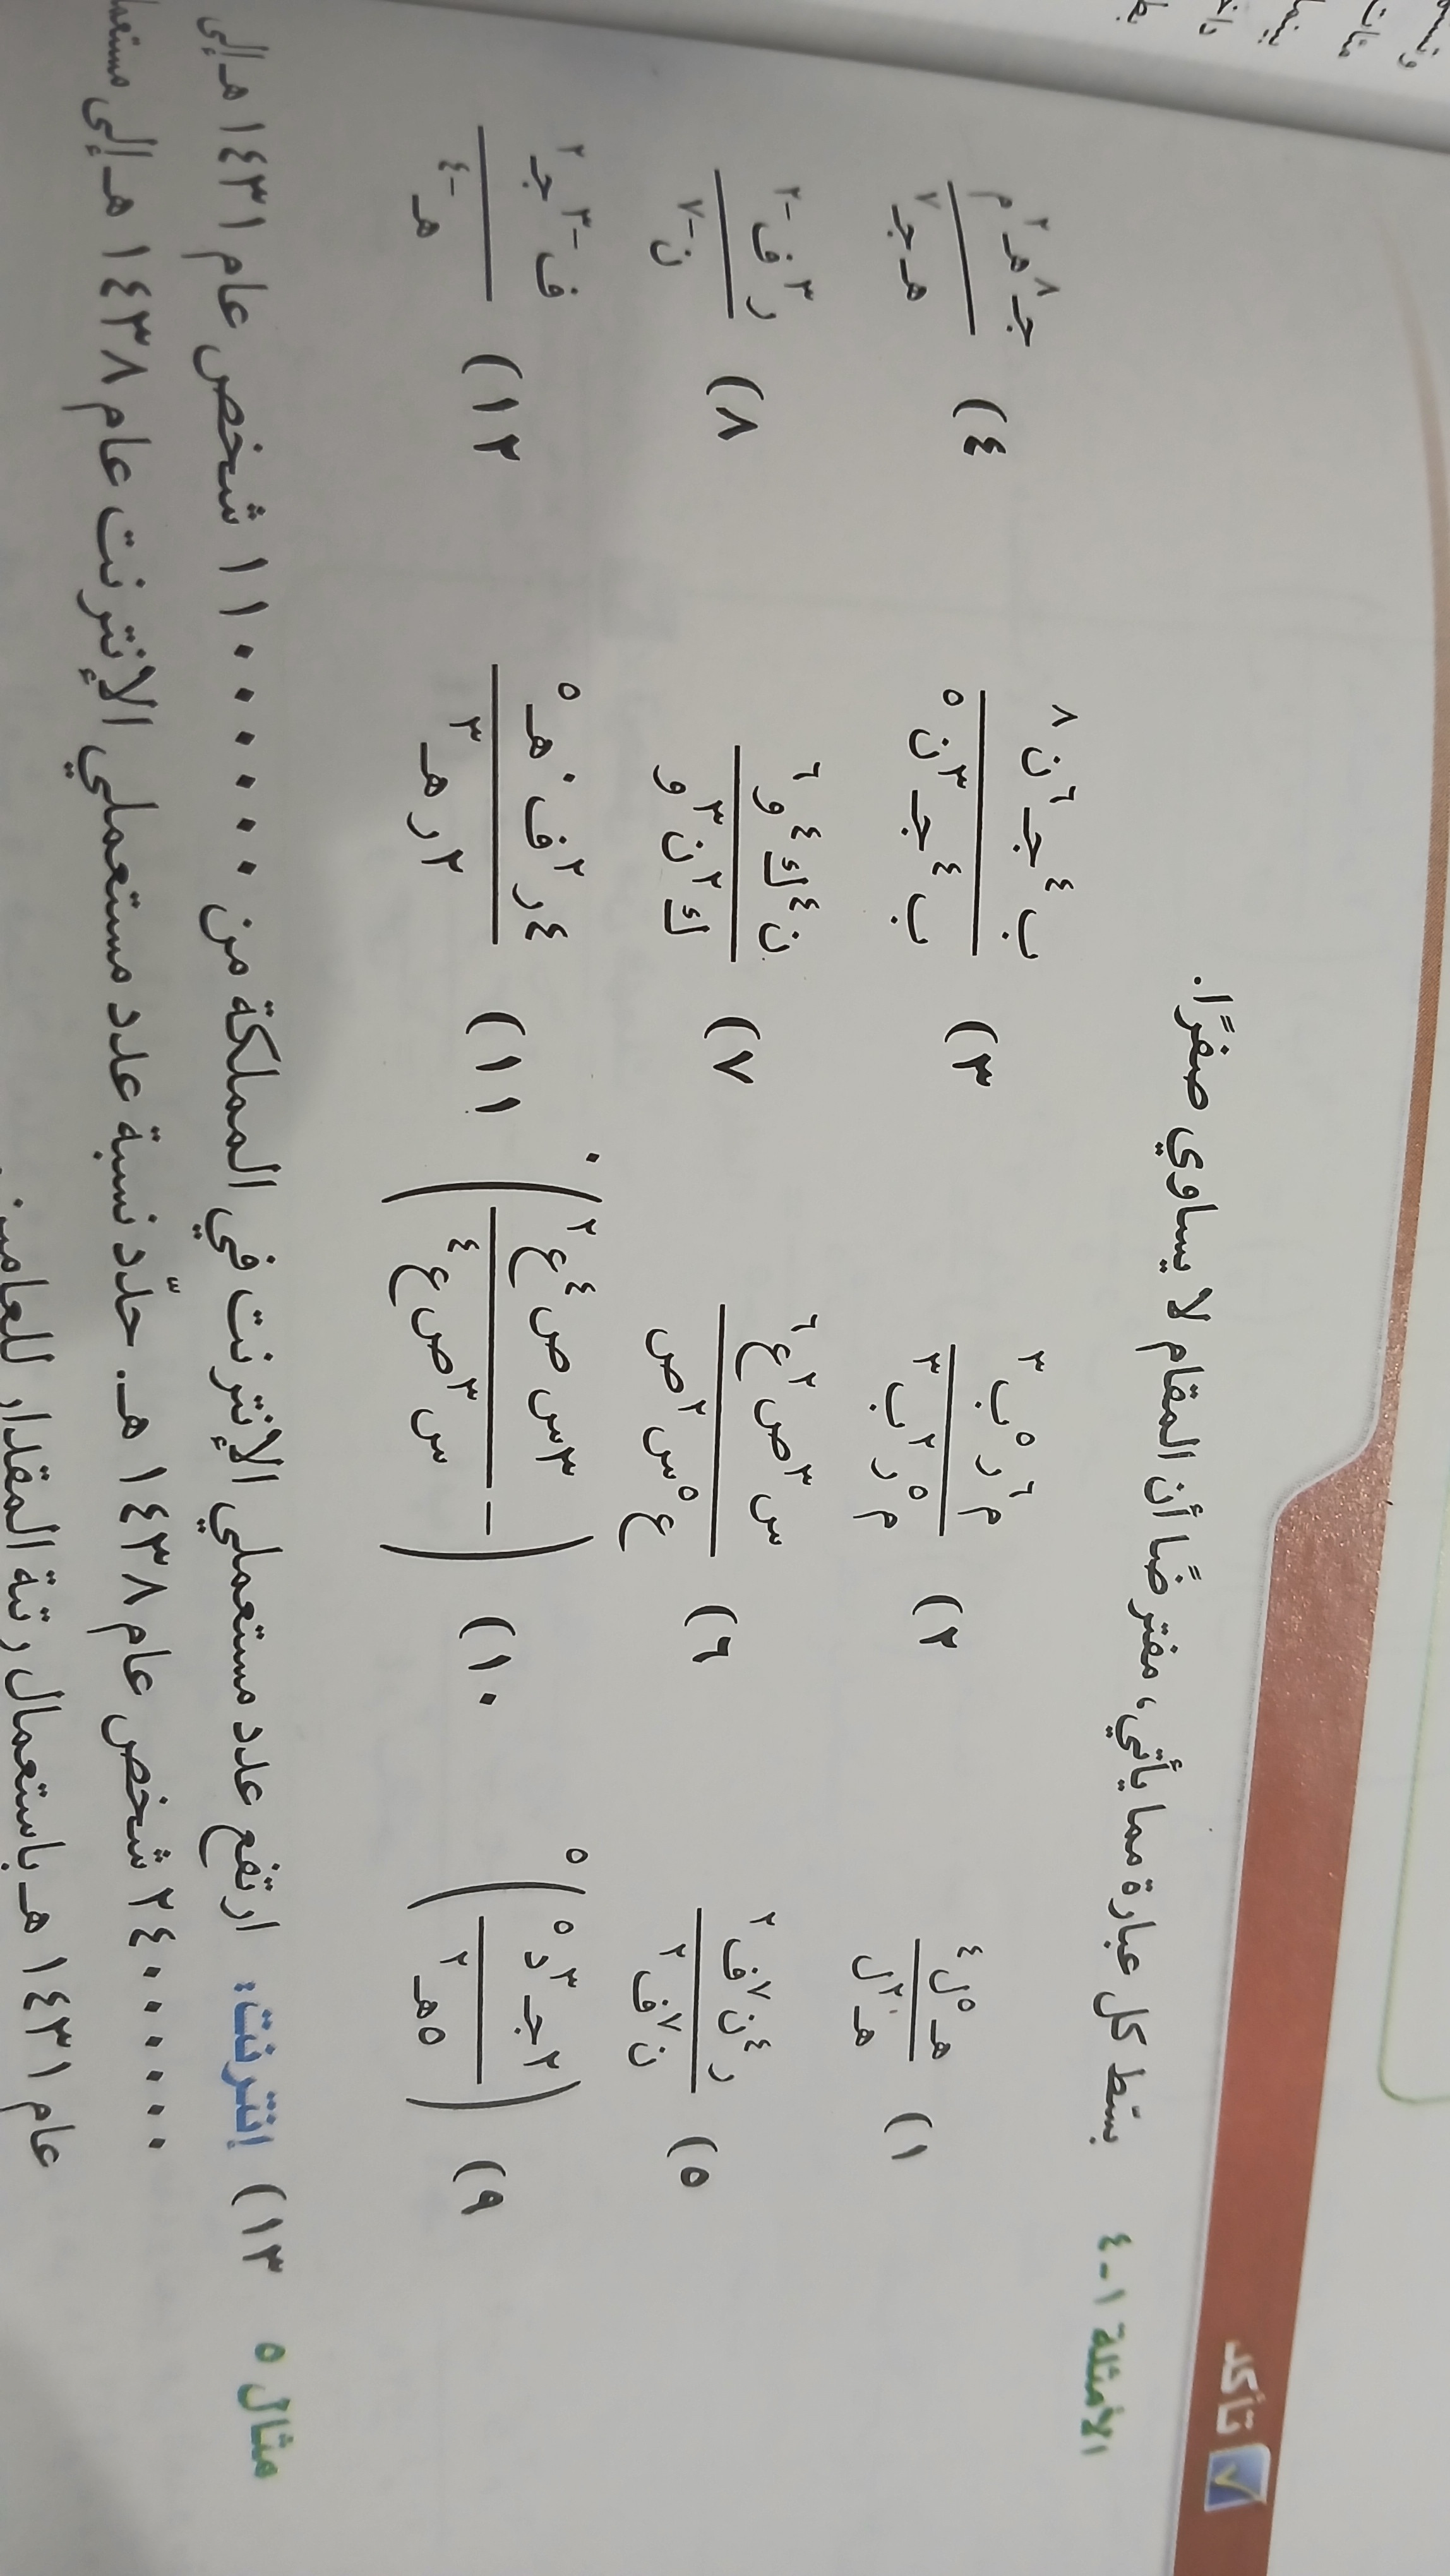 تأكد
الأمثلة ١-٤ بسّط كل عبارة مما يأتي، مفترضًا أن المقام لا يساوي صفرًا.
١) هـ^٥ ل^٤ / هـ^٢ ل ٢) م^٦ ر^٥ ب^٣ / م^٥ ر^٢ ب^٣ ٣) ب^٤ جـ^٦ ن^٨ / ب^٤ جـ^٣ ن^٥ ٤) جـ^٨ هـ^٢ م / هـ جـ^٧
٥) ر^٤ ن^٧ ف^٢ / ن^٧ ف^٢ ٦) س^٣ ص^٢ ع^٦ / ع^٥ س^٢ ص ٧) ن^٤ ك^٤ و^٦ / ك^٢ ن^٣ و ٨) ر^٣ ف^-٢ / ن^-٧
٩) (٢جـ^٣ د^٥ / ٥هـ^٢)^٥ ١٠) (- ٣س ص^٤ ع^٢ / س^٣ ص ع^٤)^٠ ١١) ٤ر^٢ ف^٠ هـ^٥ / ٢ر هـ^٣ ١٢) ف^-٣ جـ^٢ / هـ^-٤
مثال ٥ ١٣) إنترنت: ارتفع عدد مستعملي الإنترنت في المملكة من ١١٠٠٠٠٠٠ شخص عام ١٤٣١ هـ إلى
٢٤٠٠٠٠٠٠ شخص عام ١٤٣٨ هـ. حدّد نسبة عدد مستعملي الإنترنت عام ١٤٣٨ هـ إلى
عام ١٤٣١ هـ باستعمال رتبة المقدار للعامين.